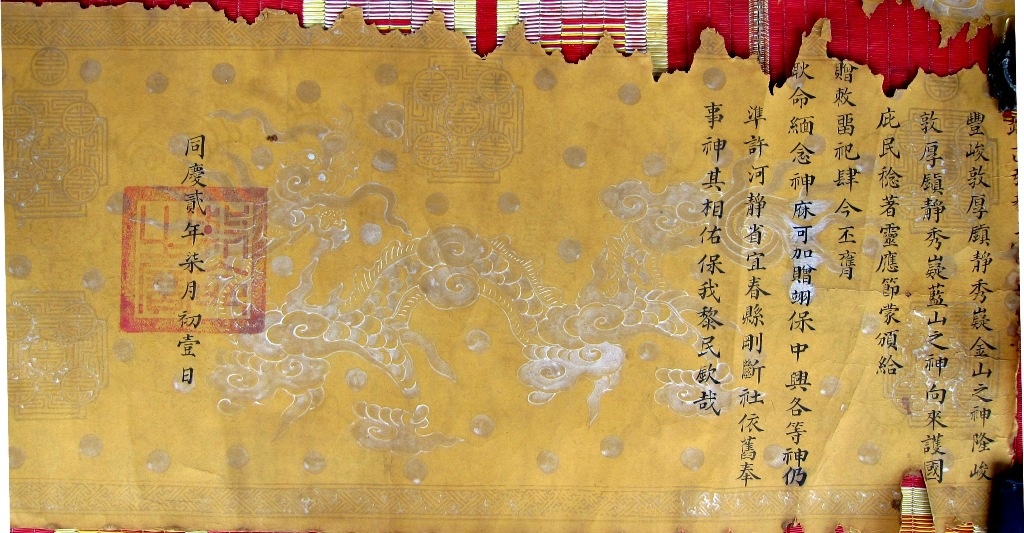 豐峻敦厚鎭靜秀嶷金山之神隆峻
敦厚鎭靜秀嶷藍山之神向來護國
庇民稔著靈應節蒙頒給
贈敕畱祀肆今丕膺
耿命緬念神庥可加贈翊保中興各等神仍
準許河靜省宜春縣剛斷社依舊奉
事神其相佑保我黎民欽哉
同慶貳年柒月初壹日